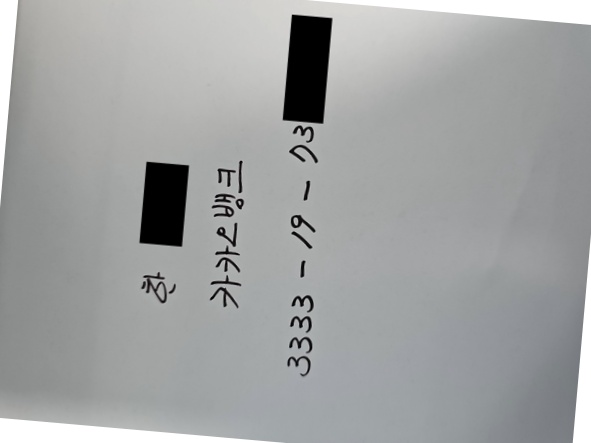 한
카카오뱅크
3333-19-73